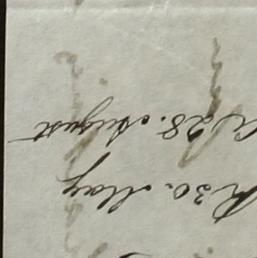 R 30. May
28. August